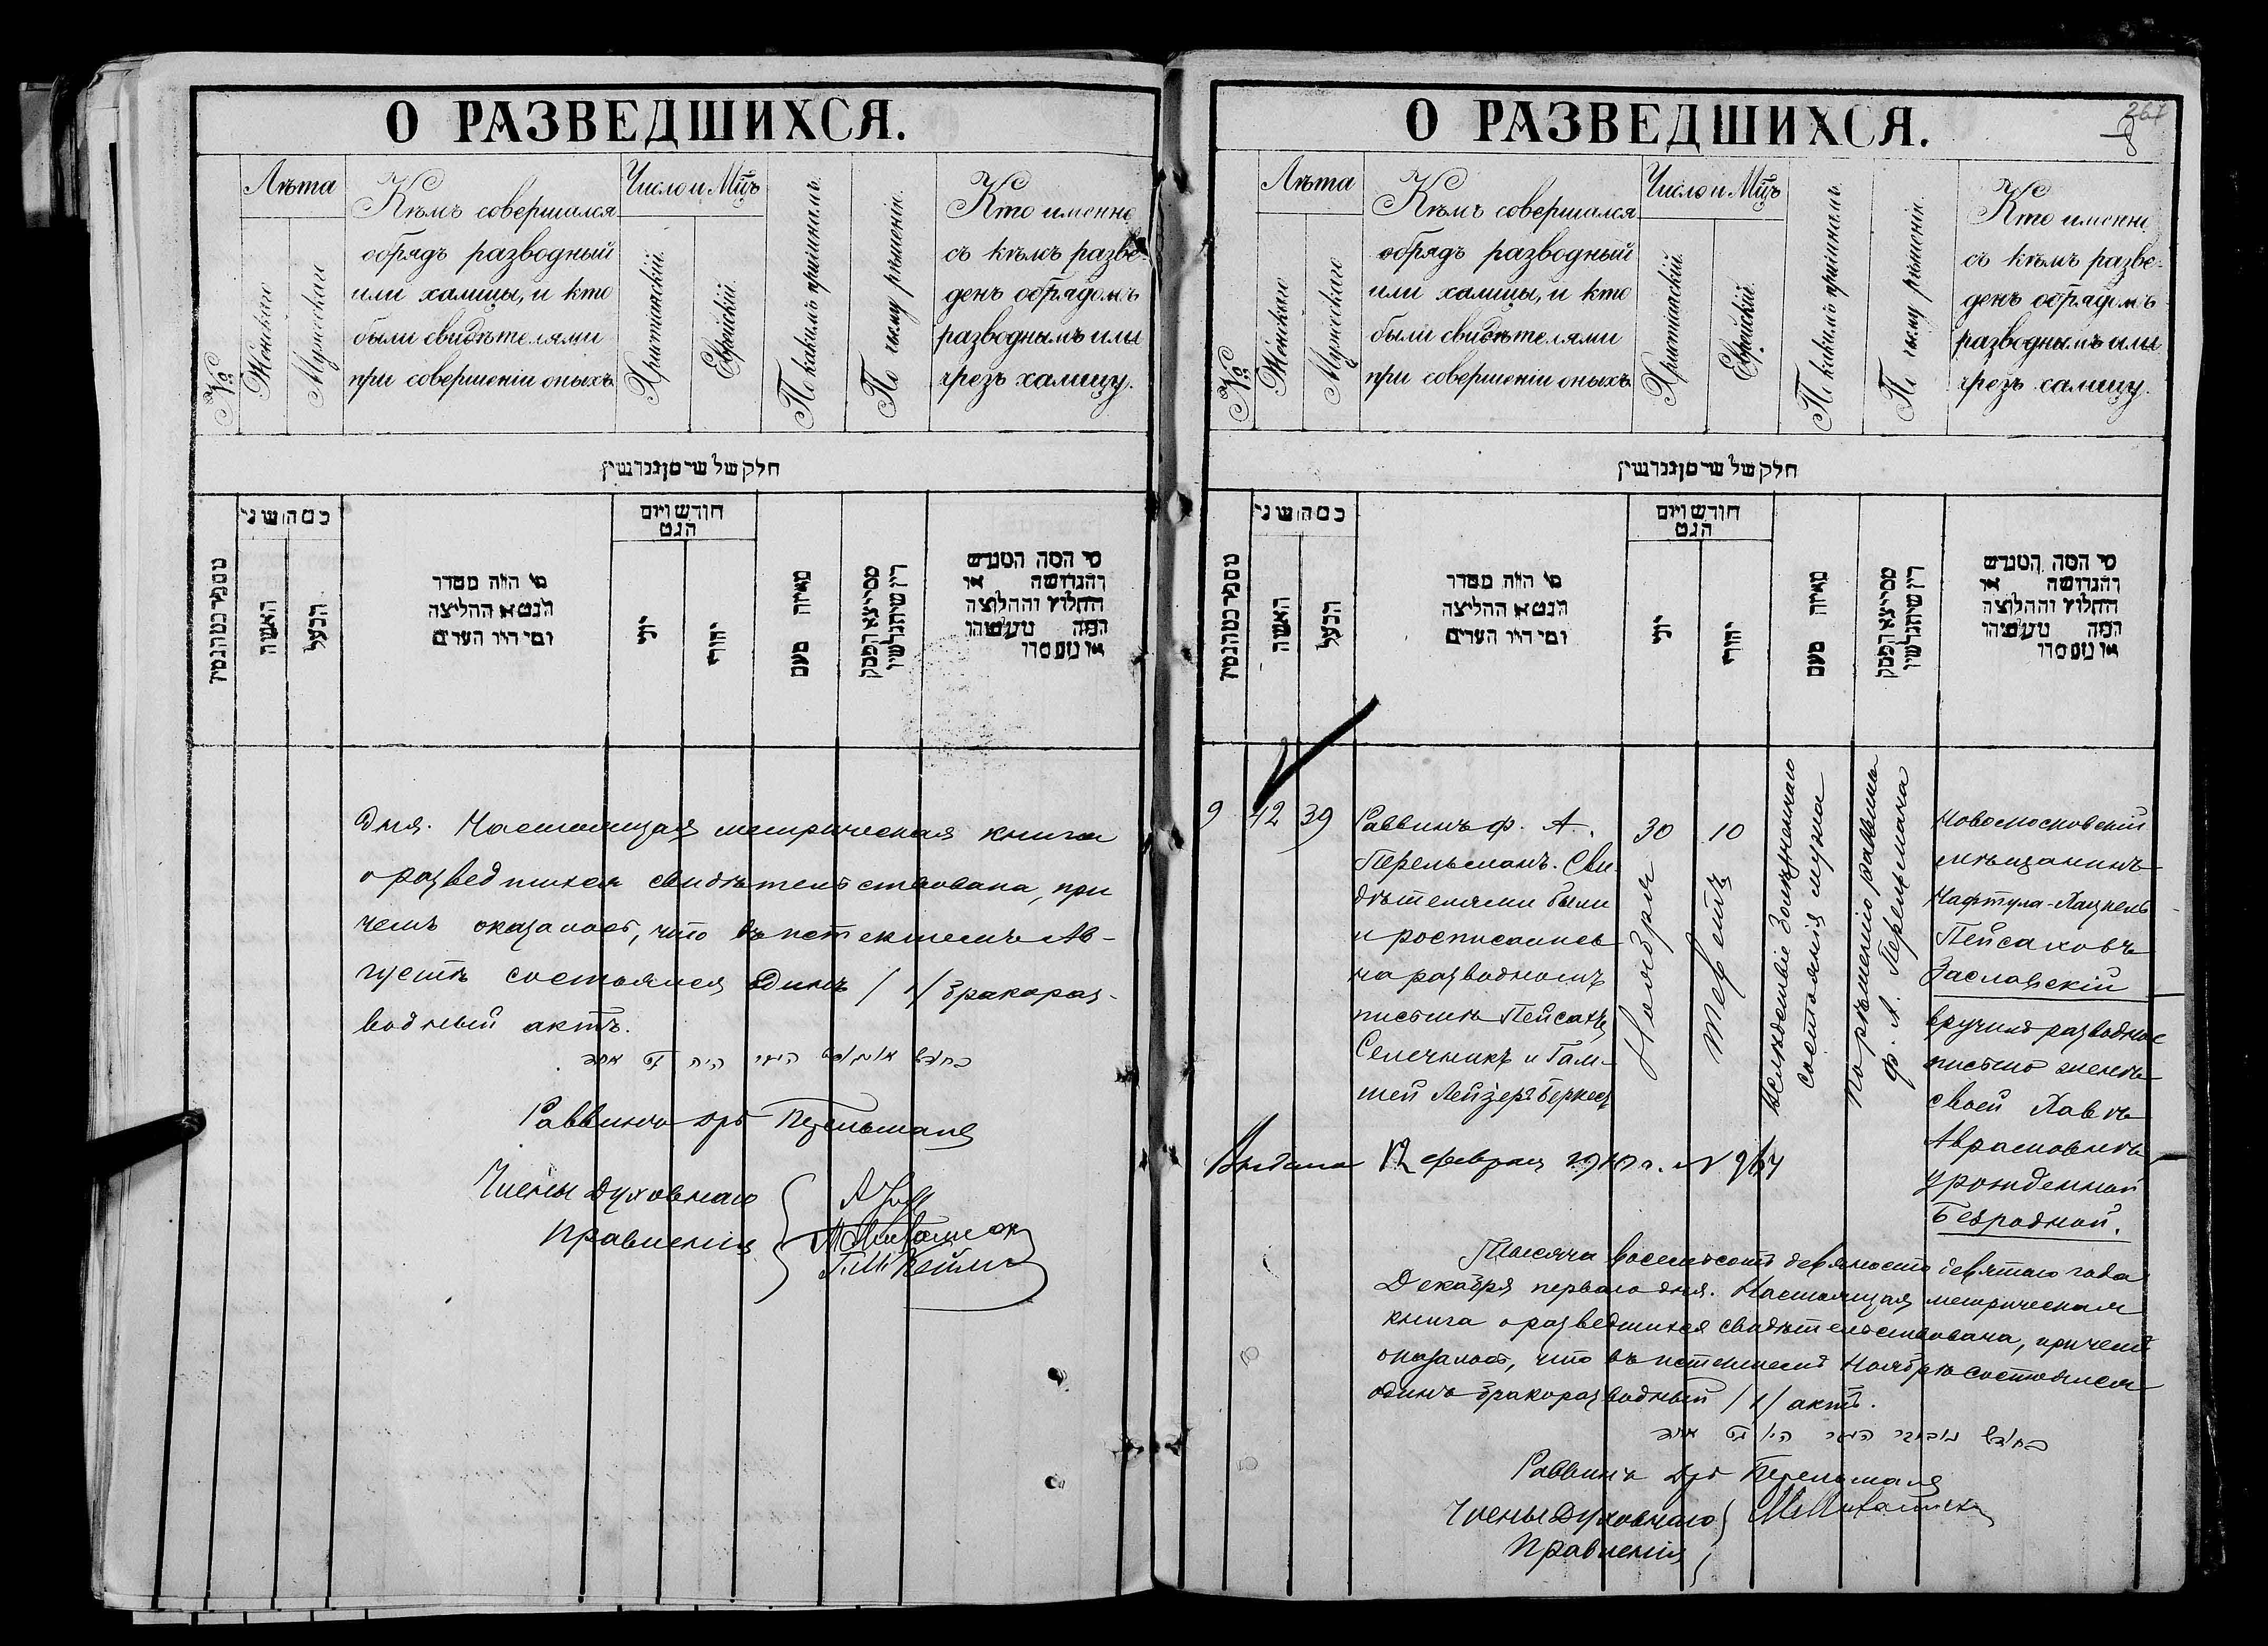 О РАЗВЕДШИХСЯ.
№
Лѣта
Женскаго
Мужескаго
Кѣмъ совершался
обрядъ разводный
или халицы, и кто
были свидѣтелями
при совершеніи оныхъ.
Число и Мѣцъ
Христіанскій.
Еврейскій.
По какимъ причинамъ.
По чьему рѣшенію.
Кто именно
съ кѣмъ разве-
денъ обрядомъ
разводнымъ или
чрезъ халицу.
חלק של שריסן גנרשין
כמה שני
האשה
הבעל
מי היה מסדר
הגט או החליצה
ומי היו העדים
חודש ויום
הגט
יוני
יהודי
מאיזה טעם
מי המה המגרש
והגרושה או
החלוץ והחלוצה
дня. Настоящая метрическая книга
о разведшихся свидѣтельствована, при
чемъ оказалось, что въ истекшемъ Ав-
густѣ состоялся одинъ /1/ бракораз-
водный актъ.
Раввинъ Дръ Перельманъ
Члены Духовнаго
Правленія
О РАЗВЕДШИХСЯ.
267
8
№
Лѣта
Женскаго
Мужескаго
Кѣмъ совершался
обрядъ разводный
или халицы, и кто
были свидѣтелями
при совершеніи оныхъ.
Число и Мѣцъ
Христіанскій.
Еврейскій.
По какимъ причинамъ.
По чьему рѣшенію.
Кто именно
съ кѣмъ разве-
денъ обрядомъ
разводнымъ или
чрезъ халицу.
חלק של שריסן גנרשין
כמה שני
האשה
הבעל
מי היה מסדר
הגט או החליצה
ומי היו העדים
חודש ויום
הגט
יוני
יהודי
מאיזה טעם
מי המה המגרש
והגרושה או
החלוץ והחלוצה
9 42 39
Раввинъ Ф. А.
Перельманъ. Сви-
дѣтелями были
и росписались
на разводномъ
письмѣ Пейсахъ
Селечникъ и Гам-
шей Лейзеръ Беркесъ
30
Ноября
10
Теветъ
Вслѣдствіе болѣзненнаго
состоянія мужа
По рѣшенію раввина
Ф. А. Перельмана
Новомосковскій
мѣщанинъ
Нафтула-Хацкель
Пейсаховъ
Заславскій
вручилъ разводное
письмо женѣ
своей Хавѣ
Аврамовнѣ
урожденной
Безродной.
Выдана 12 февраля 1910 г. № 964
Тысяча восемьсотъ девяносто девятаго года
Декабря перваго дня. Настоящая метрическая
книга о разведшихся свидѣтельствована, причемъ
оказалось, что въ истекшемъ Ноябрѣ состоялся
одинъ бракоразводный /1/ актъ.
Раввинъ Дръ Перельманъ
Члены Духовнаго
Правленія